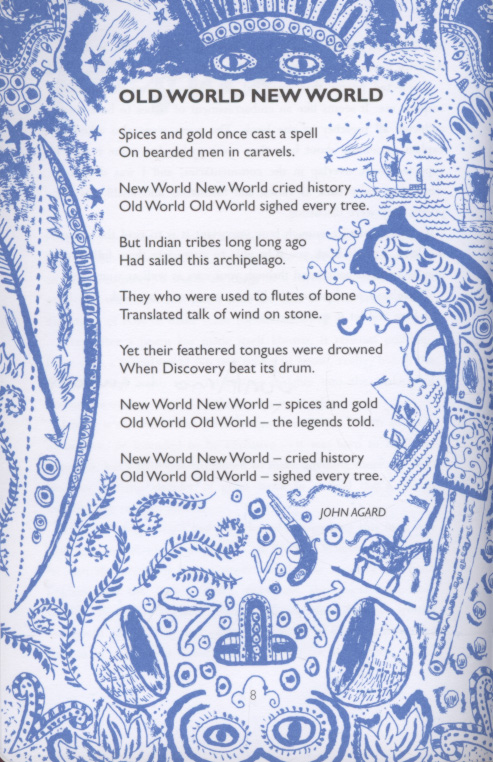 OLD WORLD NEW WORLD
Spices and gold once cast a spell
On bearded men in caravels.
New World New World cried history
Old World Old World sighed every tree.
But Indian tribes long long ago
Had sailed this archipelago.
They who were used to flutes of bone
Translated talk of wind on stone.
Yet their feathered tongues were drowned
When Discovery beat its drum.
New World New World – spices and gold
Old World Old World – the legends told.
New World New World – cried history
Old World Old World – sighed every tree.
JOHN AGARD
8